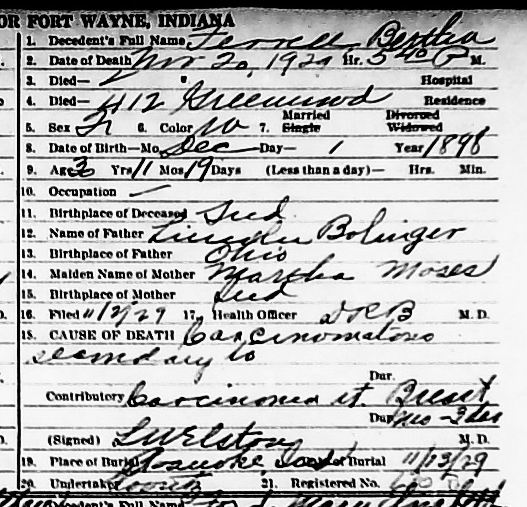 OR FORT WAYNE, INDIANA
1. Decedent's Full Name Ferrell Bertha
2. Date of Death Nov 20, 1929 Hr. 5 40 P M.
3. Died— Hospital
4. Died— 412 Greenwood Residence
Married Divorced
5. Sex F 6. Color W 7. Single Widowed
8. Date of Birth—Mo. Dec Day— 1 Year 1898
9. Age 30 Yrs 11 Mos 19 Days (Less than a day)— Hrs. Min.
10. Occupation —
11. Birthplace of Deceased Ind
12. Name of Father Lincoln Bolinger
13. Birthplace of Father Ohio
14. Maiden Name of Mother Martha Moses
15. Birthplace of Mother Ind
16. Filed 17. Health Officer M. D.
18. CAUSE OF DEATH Carcinomatosis
secondary to
Dur.
Contributory Carcinoma rt. Breast
Dur
(Signed) M. D.
19. Place of Burial Roanoke Ind of Burial 11/23/29
20. Undertaker 21. Registered No.
Decedent's Full Name